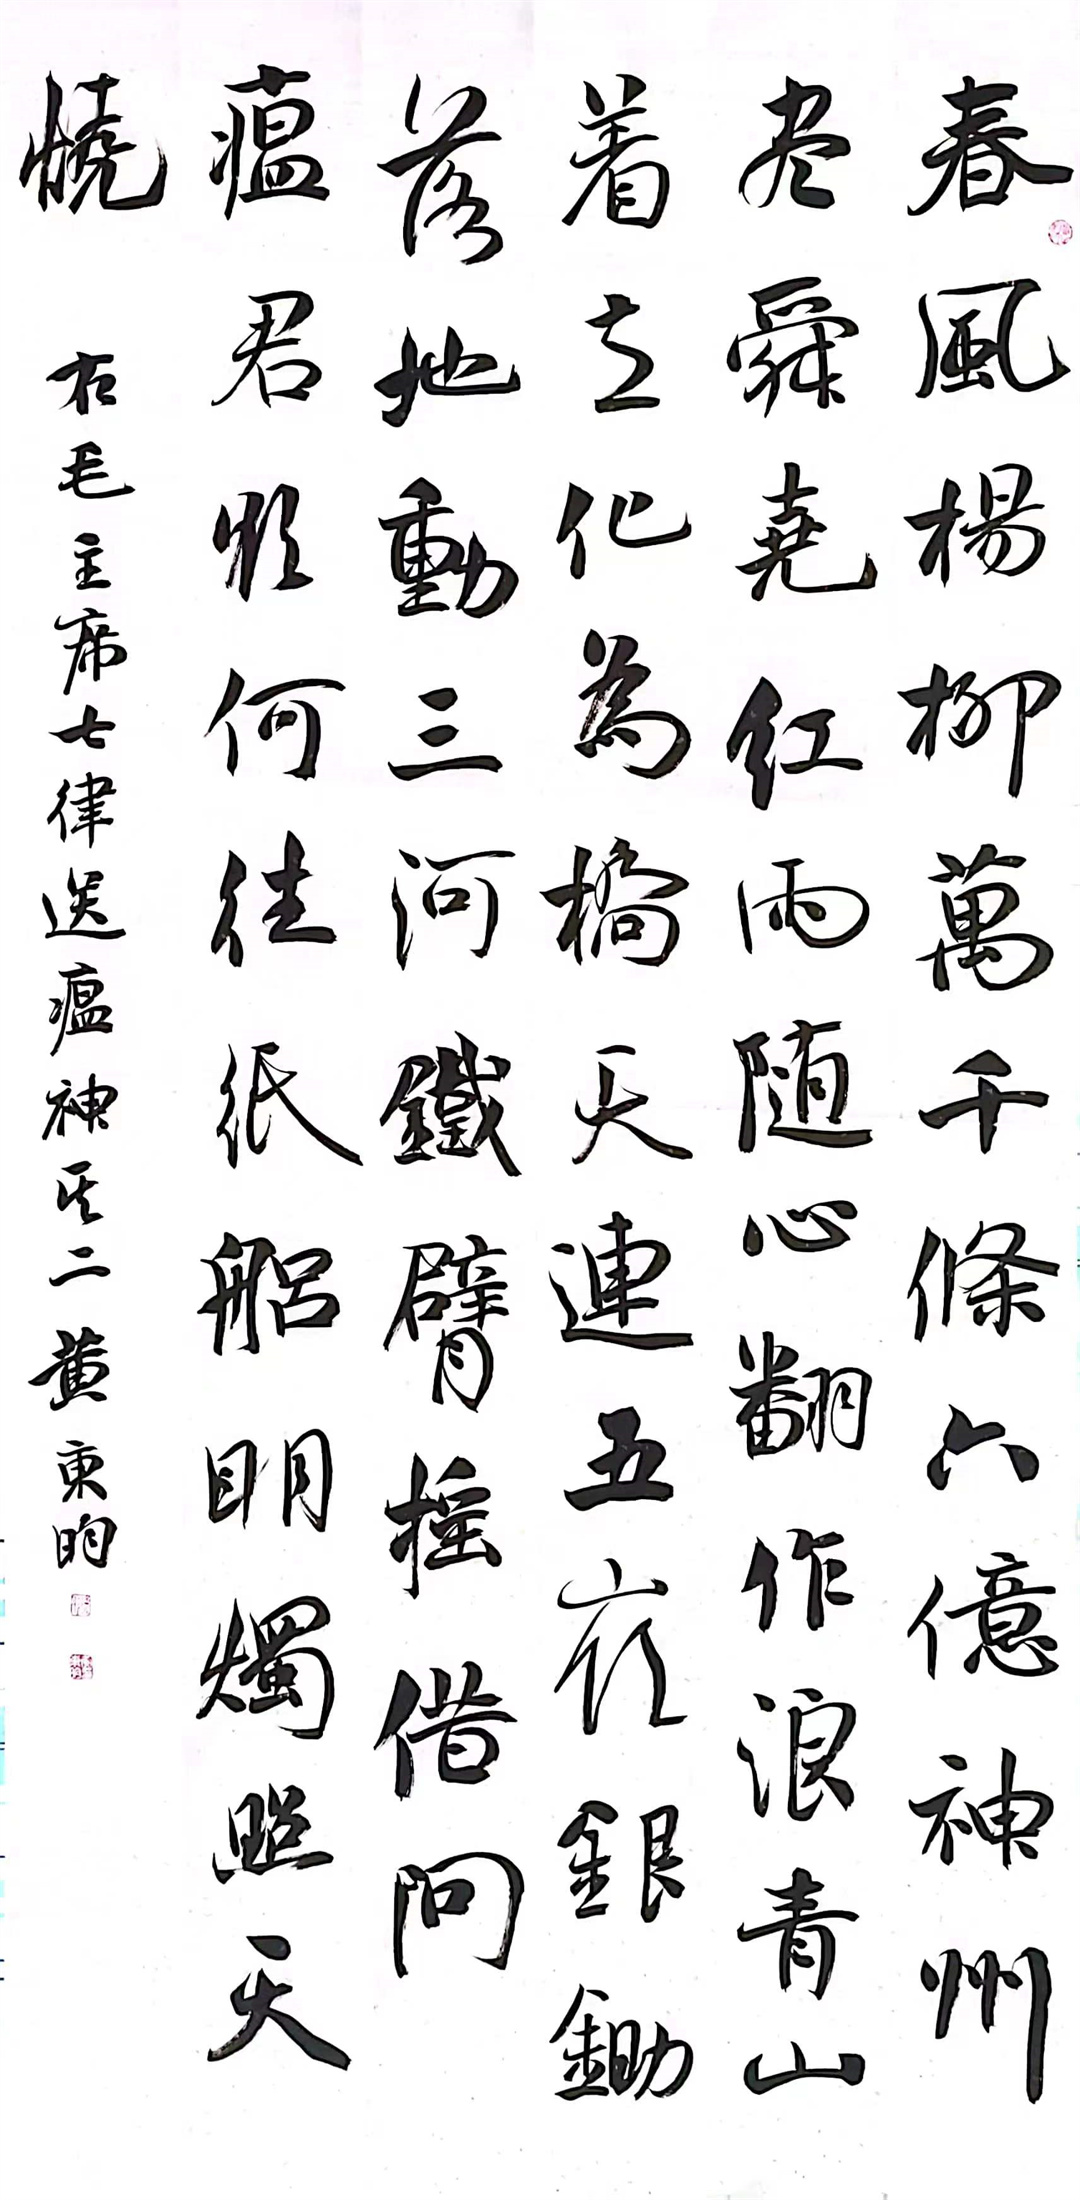 春風楊柳萬千條六億神州
尽舜堯紅雨随心翻作浪青山
着立化為橋天連五嶺銀鋤
落地動三河鐵臂搖借問
瘟君欲何往紙船明燭照天
燒
右毛主席七律送瘟神其二黄東昀